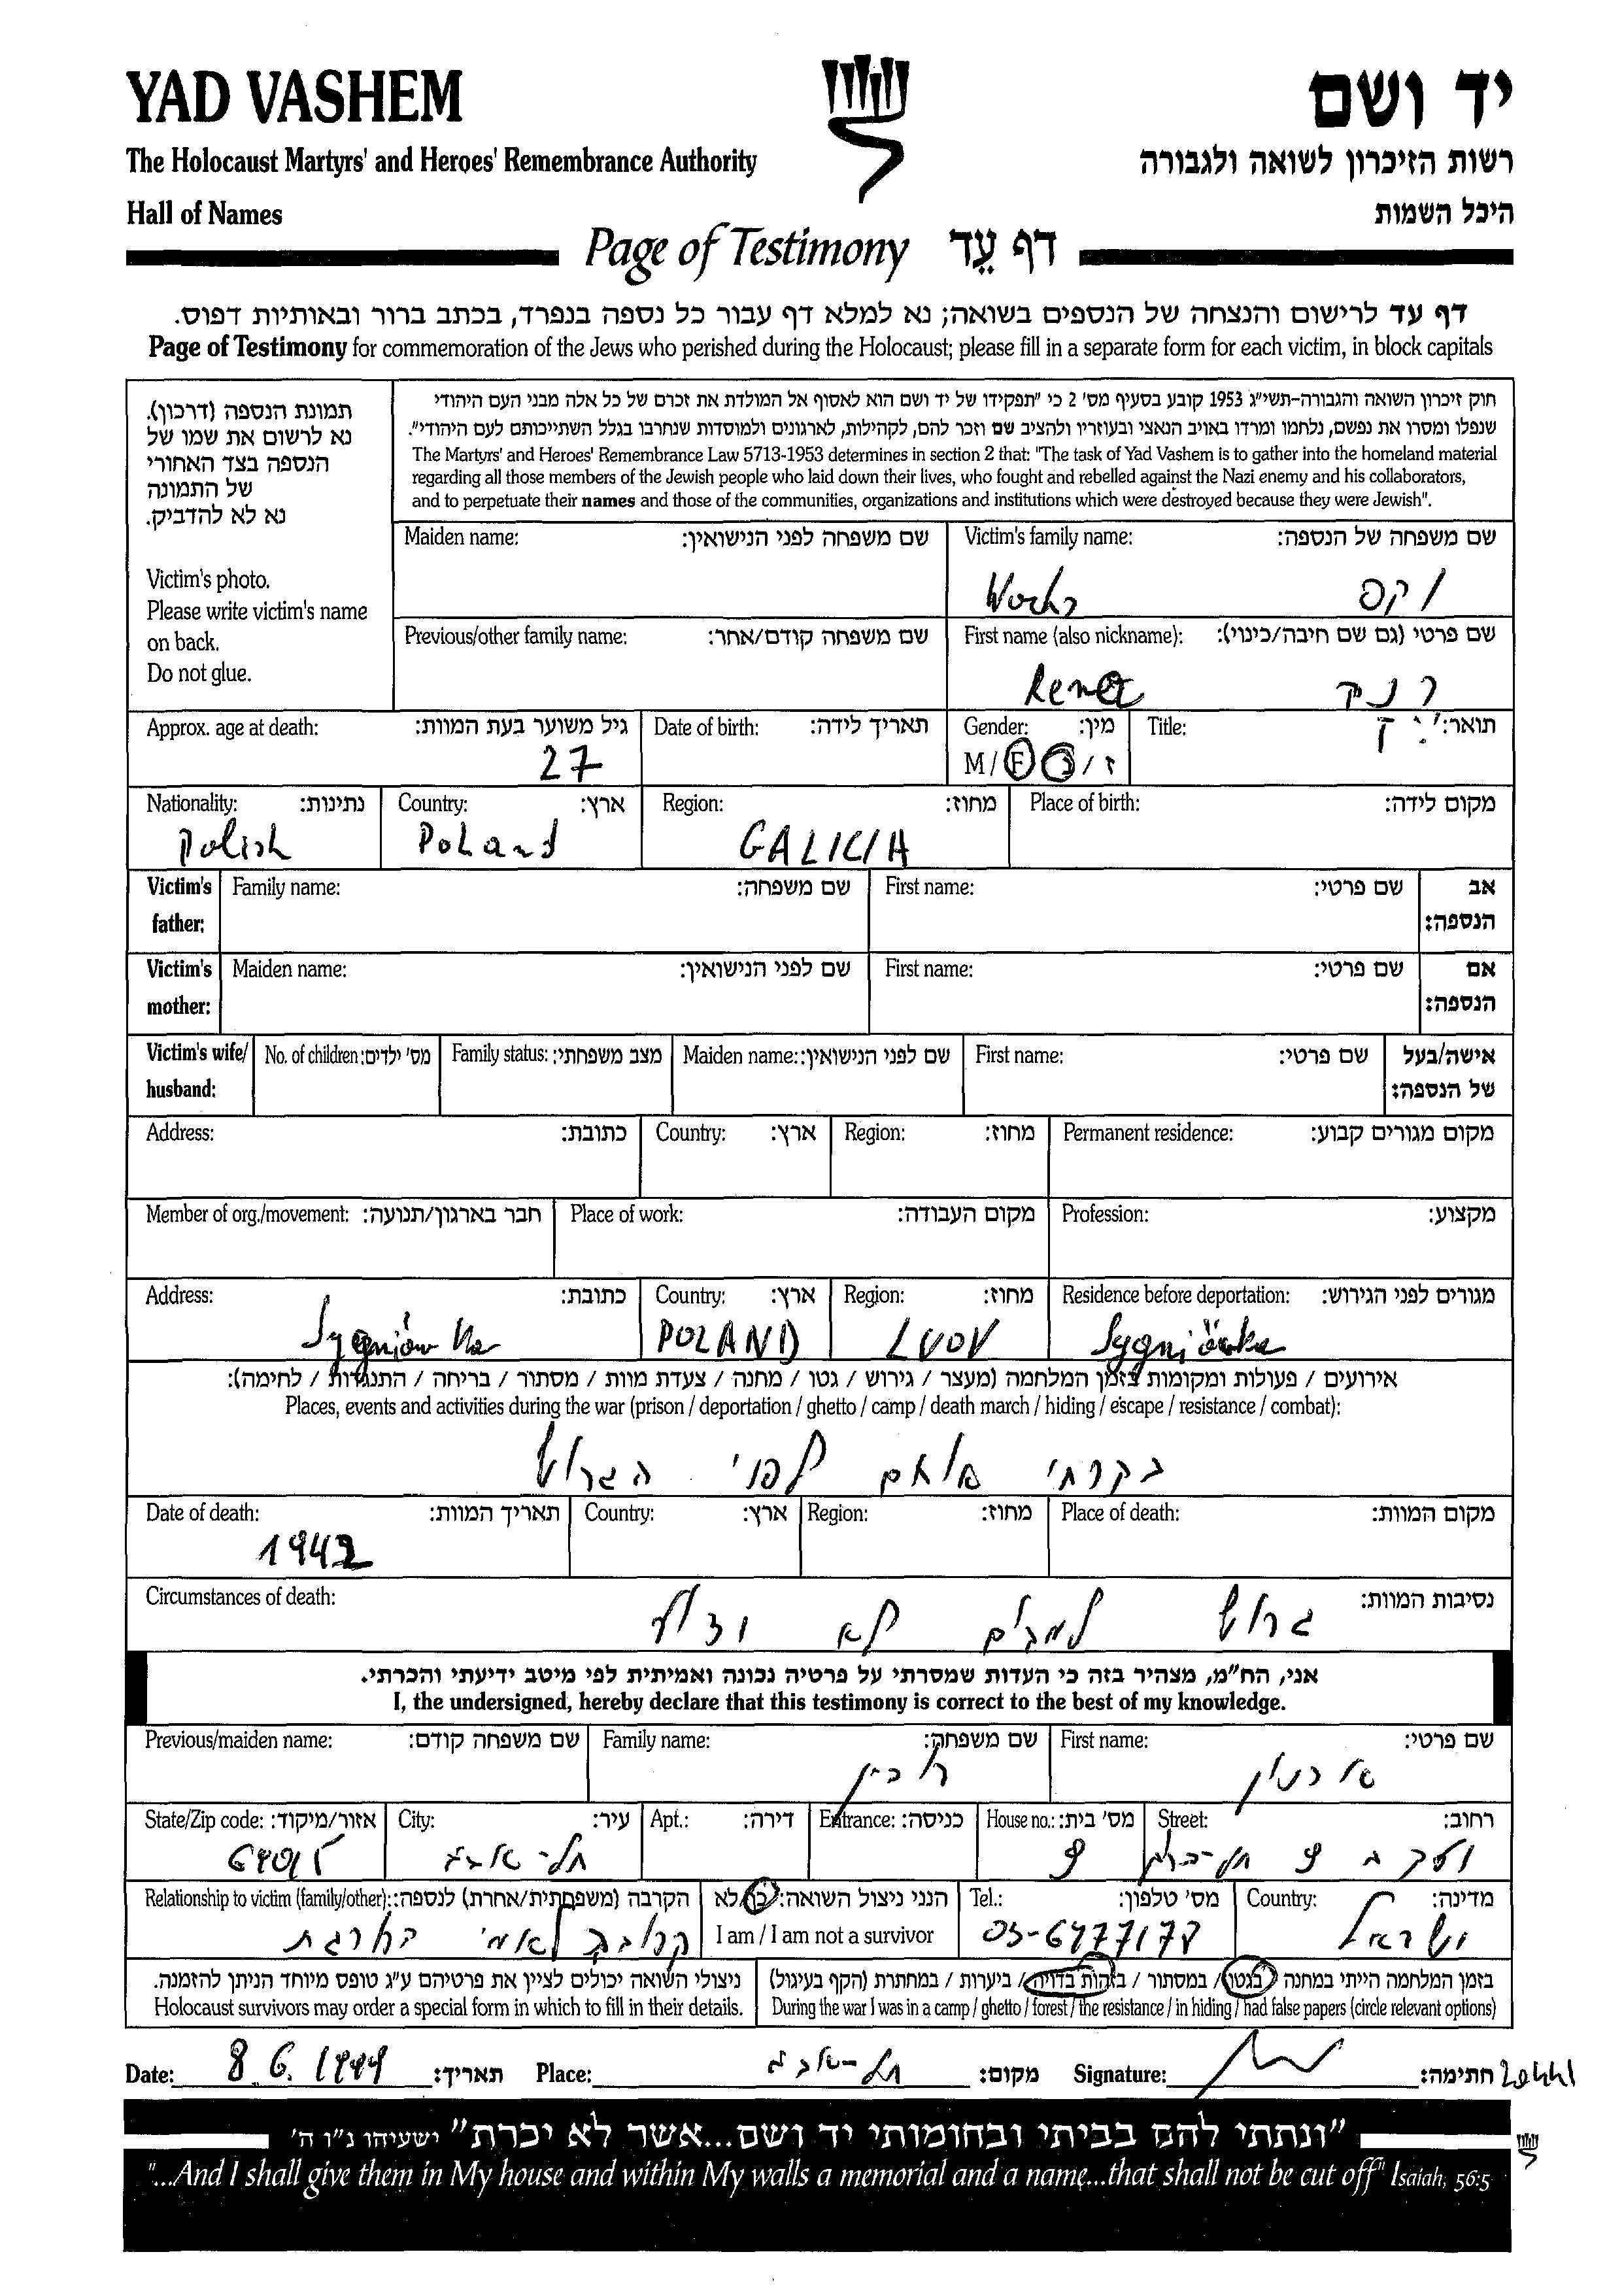 YAD VASHEM
יד ושם
The Holocaust Martyrs' and Heroes' Remembrance Authority
רשות הזיכרון לשואה ולגבורה
Hall of Names
היכל השמות
Page of Testimony דף עֵד
דף עד לרישום והנצחה של הנספים בשואה; נא למלא דף עבור כל נספה בנפרד, בכתב ברור ובאותיות דפוס.
Page of Testimony for commemoration of the Jews who perished during the Holocaust; please fill in a separate form for each victim, in block capitals
תמונת הנספה (דרכון).
נא לרשום את שמו של
הנספה בצד האחורי
של התמונה
נא לא להדביק.
Victim's photo.
Please write victim's name
on back.
Do not glue.
חוק זיכרון השואה והגבורה-תשי"ג 1953 קובע בסעיף מס' 2 כי "תפקידו של יד ושם הוא לאסוף אל המולדת את זכרם של כל אלה מבני העם היהודי
שנפלו ומסרו את נפשם, נלחמו ומרדו באויב הנאצי ובעוזריו ולהציב שם וזכר להם, לקהילות, לארגונים ולמוסדות שנחרבו בגלל השתייכותם לעם היהודי".
The Martyrs' and Heroes' Remembrance Law 5713-1953 determines in section 2 that: "The task of Yad Vashem is to gather into the homeland material
regarding all those members of the Jewish people who laid down their lives, who fought and rebelled against the Nazi enemy and his collaborators,
and to perpetuate their names and those of the communities, organizations and institutions which were destroyed because they were Jewish".
Maiden name: שם משפחה לפני הנישואין:
Victim's family name: שם משפחה של הנספה:
Previous/other family name: שם משפחה קודם/אחר:
First name (also nickname): שם פרטי (גם שם חיבה/כינוי):
Approx. age at death: גיל משוער בעת המוות:
27
Date of birth: תאריך לידה:
Gender: מין:
M / F ז / נ
Title: תואר:
Nationality: נתינות:
Polish
Country: ארץ:
Poland
Region: מחוז:
GALICIA
Place of birth: מקום לידה:
Victim's father: Family name: שם משפחה: First name: שם פרטי: אב הנספה:
Victim's mother: Maiden name: שם לפני הנישואין: First name: שם פרטי: אם הנספה:
Victim's wife/ husband: No. of children: מס' ילדים: Family status: מצב משפחתי: Maiden name: שם לפני הנישואין: First name: שם פרטי: אישה/בעל של הנספה:
Address: כתובת: Country: ארץ: Region: מחוז: Permanent residence: מקום מגורים קבוע:
Member of org./movement: חבר בארגון/תנועה: Place of work: מקום העבודה: Profession: מקצוע:
Address: כתובת: Country: ארץ: Region: מחוז: Residence before deportation: מגורים לפני הגירוש:
Sygniówka POLAND LVOV Sygniówka
אירועים / פעולות ומקומות בזמן המלחמה (מעצר / גירוש / גטו / מחנה / צעדת מוות / מסתור / בריחה / התנגדות / לחימה):
Places, events and activities during the war (prison / deportation / ghetto / camp / death march / hiding / escape / resistance / combat):
בקרתי אותם לפני הגרוש
Date of death: תאריך המוות: Country: ארץ: Region: מחוז: Place of death: מקום המוות:
1942
Circumstances of death: נסיבות המוות:
גרוש למקום לא ידוע
אני, הח"מ, מצהיר בזה כי העדות שמסרתי על פרטיה נכונה ואמיתית לפי מיטב ידיעתי והכרתי.
I, the undersigned, hereby declare that this testimony is correct to the best of my knowledge.
Previous/maiden name: שם משפחה קודם: Family name: שם משפחה: First name: שם פרטי:
State/Zip code: אזור/מיקוד: City: עיר: Apt.: דירה: Entrance: כניסה: House no.: מס' בית: Street: רחוב:
תל-אביב 9
Relationship to victim (family/other): הקרבה (משפחתית/אחרת) לנספה: הנני ניצול השואה: כן/לא Tel.: מס' טלפון: Country: מדינה:
I am / I am not a survivor 03-6477178 ישראל
ניצולי השואה יכולים לציין את פרטיהם ע"ג טופס מיוחד הניתן להזמנה.
Holocaust survivors may order a special form in which to fill in their details.
בזמן המלחמה הייתי במחנה / בגטו / במסתור / בזהות בדויה / ביערות / במחתרת (הקף בעיגול)
During the war I was in a camp / ghetto / forest / the resistance / in hiding / had false papers (circle relevant options)
Date: 8 6. 1999 תאריך: Place: תל-אביב מקום: Signature: חתימה:
"ונתתי להם בביתי ובחומותי יד ושם...אשר לא יכרת" ישעיהו נ"ו ה'
"...And I shall give them in My house and within My walls a memorial and a name...that shall not be cut off" Isaiah, 56:5